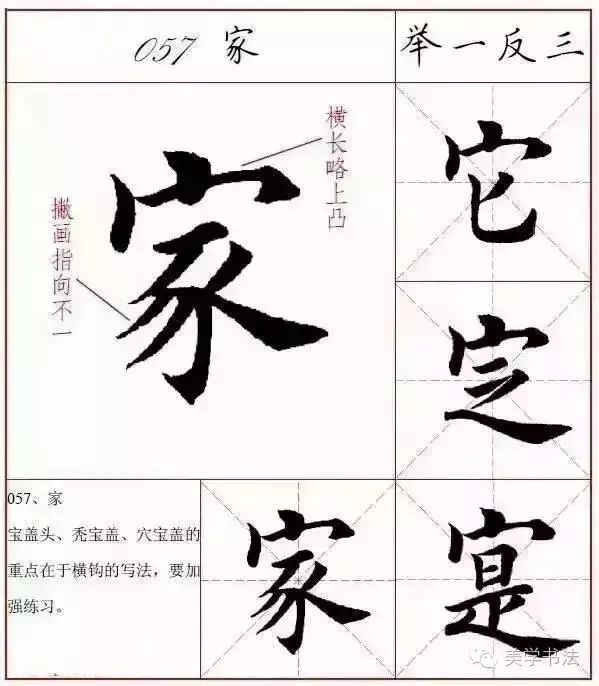 057 家
举一反三
横长略上凸
撇画指向不一
家
它
㝎
057、家
宝盖头、秃宝盖、穴宝盖的
重点在于横钩的写法，要加
强练习。
家
寔
美学书法